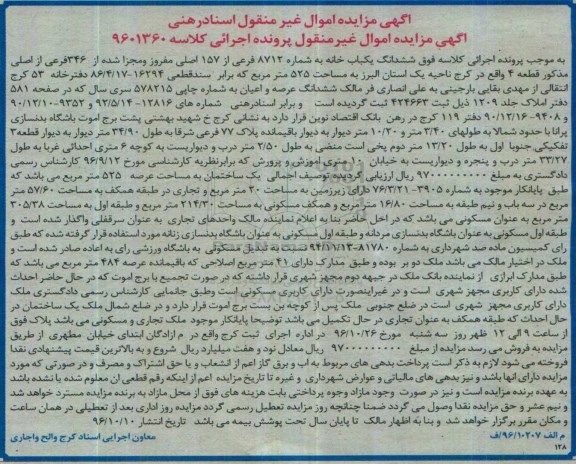 آگهی مزایده اموال غیر منقول اسنادرهنی
آگهی مزایده اموال غیرمنقول پرونده اجرائی کلاسه ۹۶۰۱۳۶۰
به موجب پرونده اجرائی کلاسه فوق ششدانگ یکباب خانه به شماره ۸۷۱۲ فرعی از ۱۵۷ اصلی مفروز ومجزا شده از ۳۴۶فرعی از اصلی
مذکور قطعه ۴ واقع در کرج ناحیه یک استان البرز به مساحت ۵۲۵ متر مربع که برابر سندقطعی ۱۶۲۹۴-۸۶/۴/۱۷ دفترخانه ۵۳ کرج
انتقالی از مهدی بقایی بارجینی به علی انصاری فر مالک ششدانگ عرصه و اعیان به شماره چاپی ۵۷۸۲۱۵ سری سال که در صفحه ۵۸۱
دفتر املاک جلد ۱۲۰۹ ذیل ثبت ۴۲۴۶۶۳ ثبت گردیده است و برابر اسنادرهنی شماره های ۱۲۸۱۶-۹۲/۵/۱۴ ۹۳۵۲-۹۰/۱۲/۱۰
و ۹۴۰۸-۹۰/۱۲/۱۶ دفتر ۱۱۹ کرج در رهن بانک اقتصاد نوین قرار دارد به نشانی کرج خ شهید بهشتی پشت برج اموت باشگاه بدنسازی
پرانا با حدود شمالا به طولهای ۳/۴۰ متر و ۱۰/۲۰ متر دیوار به دیوار باقیمانده پلاک ۷۷ فرعی شرقا به طول ۳۴/۹۰ متر دیوار به دیوار قطعه۳
تفکیکی جنوبا اول به طول ۱۳/۲۰ متر دوم پخی است منضی به طول ۲/۵۰ متر درب و دیواریست به کوچه ۶ متری احداثی غربا به طول
۳۳/۲۷ متر درب و پنجره و دیواریست به خیابان متری آموزش و پرورش که برابرنظریه کارشناسی مورخ ۹۶/۹/۱۲ کارشناس رسمی
دادگستری به مبلغ ۹۷۰۰۰۰۰۰۰۰۰ ریال ارزیابی گردیده توصیف اجمالی یک ساختمان به مساحت عرصه ۵۲۵ متر مربع می باشد که
طبق پایانکار موجود به شماره ۳۹۰۵-۷۶/۳/۲۱ دارای زیرزمین به مساحت ۲۰ متر مربع و تجاری در طبقه همکف به مساحت ۵۷/۶۰ متر
مربع در سه باب و نیم طبقه به مساحت ۱۶/۸۰ متر مربع و همکف مسکونی به مساحت ۲۱۴/۳۰ متر مربع و طبقه اول به مساحت ۳۰۵/۳۸
متر مربع به عنوان مسکونی می باشد که در اخل حاضر بنا به اعلام نماینده مالک واحدهای تجاری به عنوان سرقفلی واگذار شده است و
طبقه اول مسکونی به عنوان باشگاه بدنسازی مردانه و طبقه اول مسکونی به عنوان باشگاه بدنسازی زنانه مورد استفاده قرار گرفته شده که طبق
رای کمیسیون ماده صد شهرداری به شماره ۸۱۷۸۰-۹۴/۱۱/۱۳ نسبت به تبدیل مسکونی به باشگاه ورزشی رای به اعاده صادر شده است و
ملک در اختیار مالک می باشد ملک دو بر بوده و طبق مدارک دارای ۴۱ متر مربع اصلاحی که باقیمانده عرصه ۴۸۴ متر مربع می باشد که
طبق مدارک ابرازی از نماینده بانک ملک در جبهه دوم مجهز شهری قرار داشته که در صورت تجمیع با برج اموت که در حال حاضر احداث
شده دارای کاربری مجهز شهری است و در غیراینصورت دارای کاربری مسکونی است وطبق جانمایی کارشناس رسمی دادگستری ملک
دارای کاربری مجهز شهری است در ضلع جنوبی ملک پس از کوچه بن بست برج اموت قرار دارد و در ضلع شمال ملک یک ساختمان در
حال احداث که طبقه همکف به عنوان تجاری در حال تکمیل می باشد توضیحا پایانکار موجود ملک تجاری و مسکونی می باشد پلاک فوق
از ساعت ۹ الی ۱۲ ظهر روز سه شنبه مورخ ۹۶/۱۰/۲۶ در اداره اجرای ثبت کرج واقع در م آزادگان ابتدای خیابان مطهری از طریق
مزایده به فروش می رسد مزایده از مبلغ ۹۷۰۰۰۰۰۰۰۰۰ ریال معادل نود و هفت میلیارد ریال شروع و به بالاترین قیمت پیشنهادی نقدا
فروخته می شود لازم به ذکر است پرداخت بدهی های مربوط به اب و برق گاز اعم از انشعاب و یا حق اشتراک و مصرف و در صورتی که مورد
مزایده دارای انها باشد و نیز بدهی های مالیاتی و عوارض شهرداری و غیره تا تاریخ مزایده اعم از اینکه رقم قطعی ان معلوم شده یا نشده باشد
به عهده برنده مزایده است و نیز در صورت وجود مازاد وجوه پرداختی بابت هزینه های فوق از محل مازاد به برنده مزایده مسترد خواهد شد
و نیم عشر و حق مزایده نقدا وصول می گردد ضمنا چنانچه روز مزایده تعطیل رسمی گردد مزایده روز اداری بعد از تعطیلی در همان ساعت
و مکان مقرر برگزار خواهد شد و بنا به اظهار مالک تا پایان سال تحت پوشش بیمه می باشد تاریخ انتشار ۹۶/۱۰/۱۰
م الف ۹۶/۱۰۲۰۷/ف
معاون اجرایی اسناد کرج والح واجاری
۱۲۸